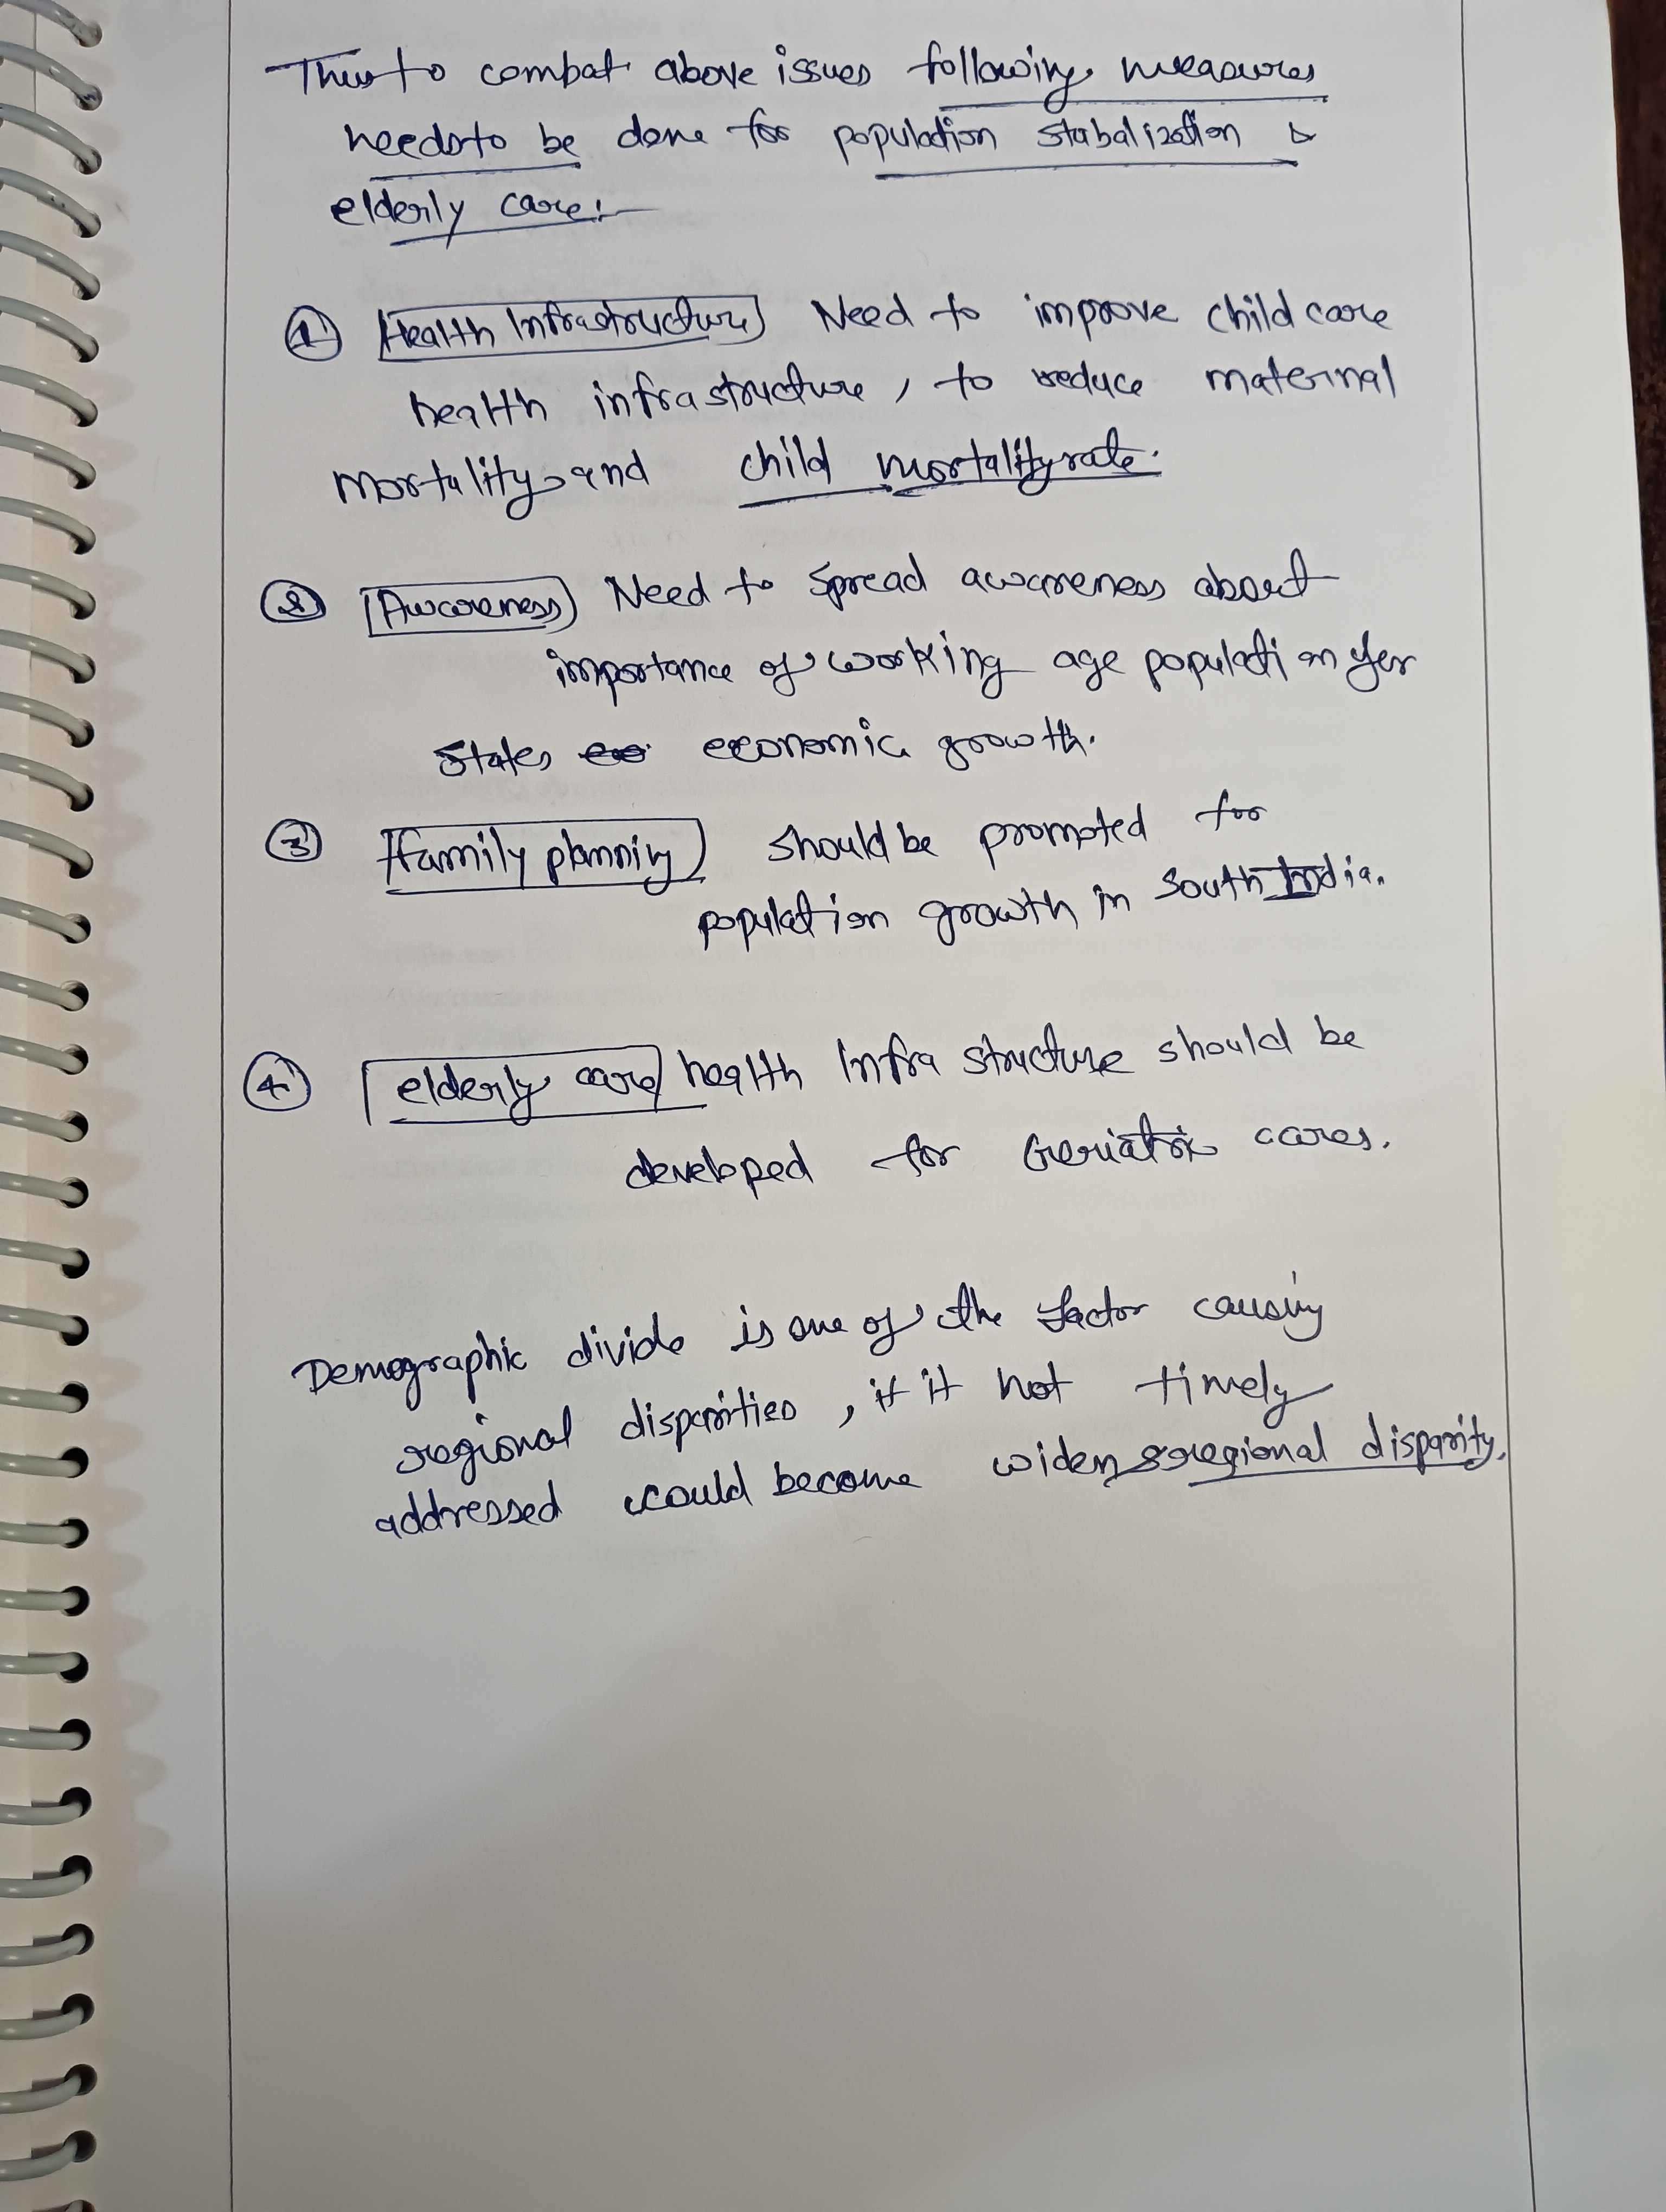 Thus to combat above issues following measures
needs to be done for population stabalization &
elderly care:-
① Health Infrastructure Need to improve child care
health infrastructure, to reduce maternal
mortality and child mortality rate.
② Awareness Need to spread awareness about
importance of working age population for
states economic growth.
③ Family planning should be promoted for
population growth in South India.
④ elderly care health Infra structure should be
developed for Geriatric cares.
Demographic divide is one of the factor causing
regional disparities, if it not timely
addressed could become widen regional disparity.